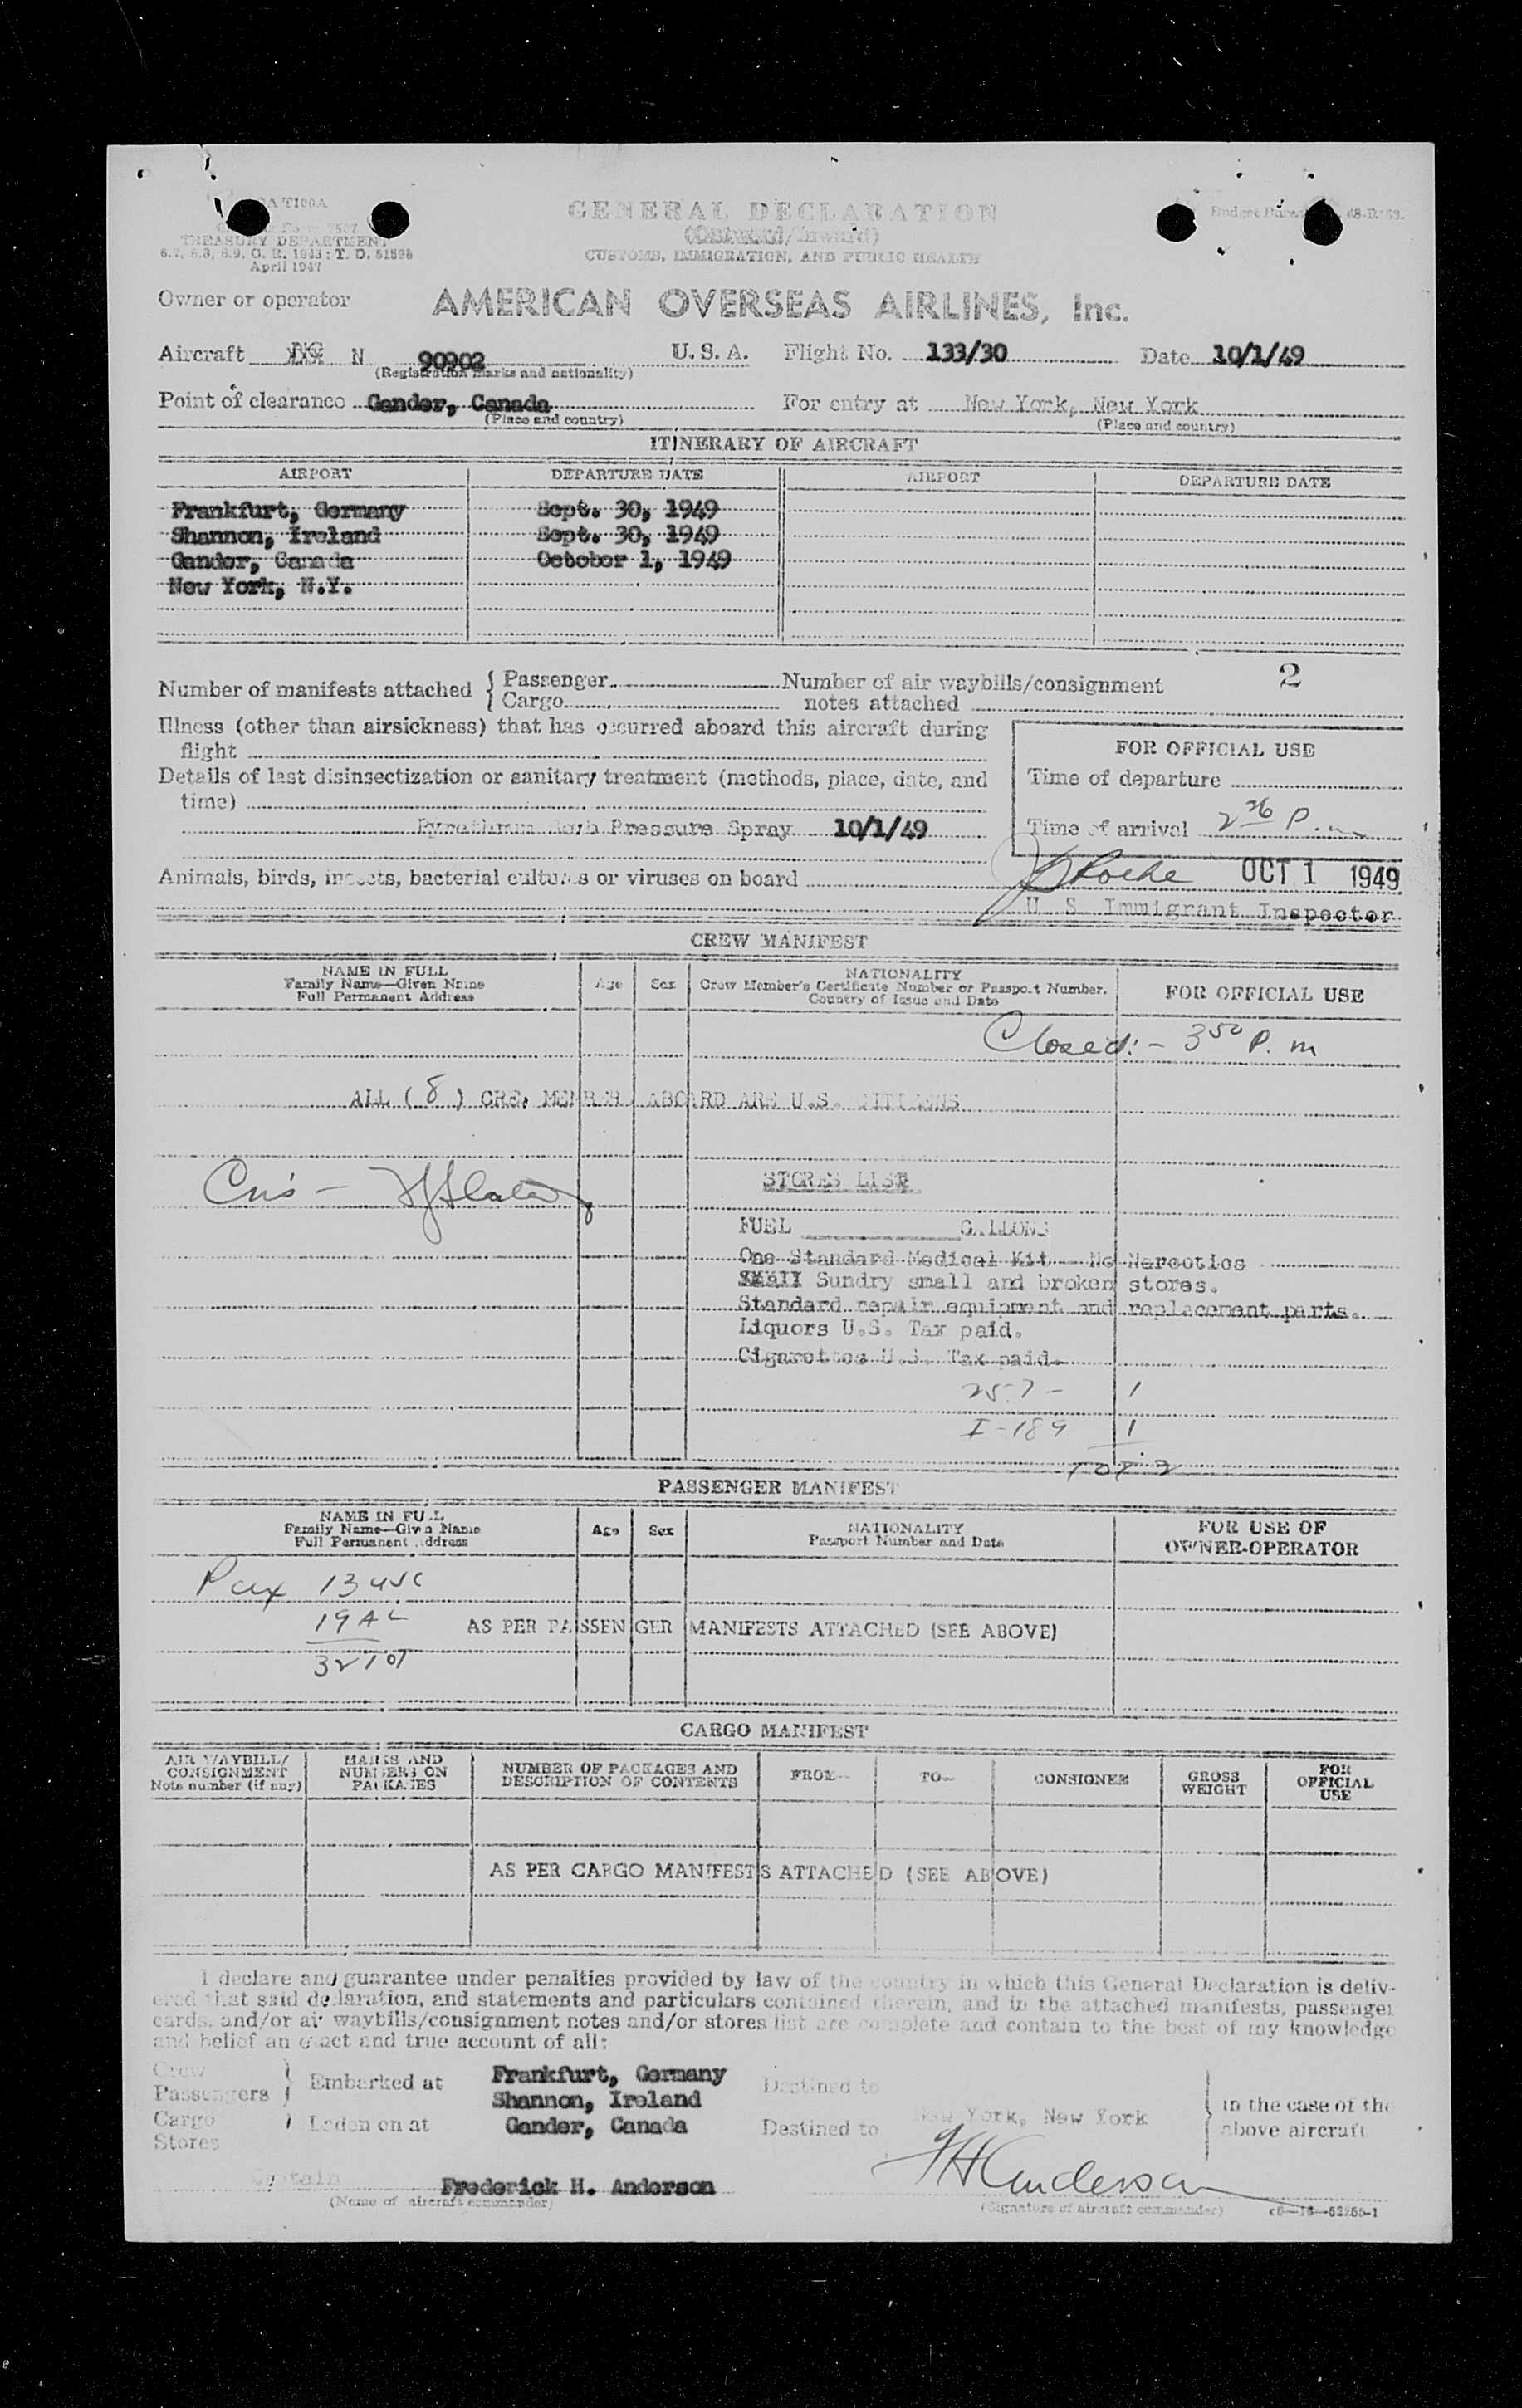 TREASURY DEPARTMENT
April 1947
GENERAL DECLARATION
(Outward/Inward)
CUSTOMS, IMMIGRATION, AND PUBLIC HEALTH
Owner or operator AMERICAN OVERSEAS AIRLINES, Inc.
Aircraft N 90902 U. S. A. Flight No. 133/30 Date 10/1/49
(Registration marks and nationality)
Point of clearance Gander, Canada For entry at New York, New York
(Place and country) (Place and country)
ITINERARY OF AIRCRAFT
AIRPORT DEPARTURE DATE AIRPORT DEPARTURE DATE
Frankfurt, Germany Sept. 30, 1949
Shannon, Ireland Sept. 30, 1949
Gander, Canada October 1, 1949
New York, N.Y.
2
Number of manifests attached { Passenger Number of air waybills/consignment
Cargo notes attached
Illness (other than airsickness) that has occurred aboard this aircraft during
flight
FOR OFFICIAL USE
Details of last disinsectization or sanitary treatment (methods, place, date, and
time)
Time of departure
Pressure Spray 10/1/49
Time of arrival 2 26 P.m
Animals, birds, insects, bacterial cultures or viruses on board
OCT 1 1949
U S Immigrant Inspector
CREW MANIFEST
NAME IN FULL
Family Name—Given Name
Full Permanent Address
Age Sex
NATIONALITY
Crew Member's Certificate Number or Passport Number.
Country of Issue and Date
FOR OFFICIAL USE
Closed:- 3 50 P. m
ALL (8) CREW MEMBERS ABOARD ARE U.S. CITIZENS
STORES LIST
FUEL GALLONS
One Standard Medical Kit - No Narcotics
Sundry small and broken stores.
Standard repair equipment and replacement parts.
Liquors U.S. Tax paid.
Cigarettes U.S. Tax paid.
257 - 1
I-189 1
TOT 2
PASSENGER MANIFEST
NAME IN FULL
Family Name—Given Name
Full Permanent Address
Age Sex
NATIONALITY
Passport Number and Date
FOR USE OF
OWNER-OPERATOR
Pax 13 USC
19 AL
AS PER PASSENGER MANIFESTS ATTACHED (SEE ABOVE)
32 TOT
CARGO MANIFEST
AIR WAYBILL/
CONSIGNMENT
Note number (if any)
MARKS AND
NUMBERS ON
PACKAGES
NUMBER OF PACKAGES AND
DESCRIPTION OF CONTENTS
FROM— TO— CONSIGNEE
GROSS
WEIGHT
FOR
OFFICIAL
USE
AS PER CARGO MANIFESTS ATTACHED (SEE ABOVE)
I declare and guarantee under penalties provided by law of the country in which this General Declaration is deliv-
ered that said declaration, and statements and particulars contained therein, and in the attached manifests, passenger
cards, and/or air waybills/consignment notes and/or stores list are complete and contain to the best of my knowledge
and belief an exact and true account of all:
Crew
Passengers } Embarked at Frankfurt, Germany Destined to
Shannon, Ireland
Cargo } Laden on at Gander, Canada Destined to New York, New York } in the case of the
Stores above aircraft
Captain Frederick H. Anderson FHAnderson
(Name of aircraft commander) (Signature of aircraft commander)